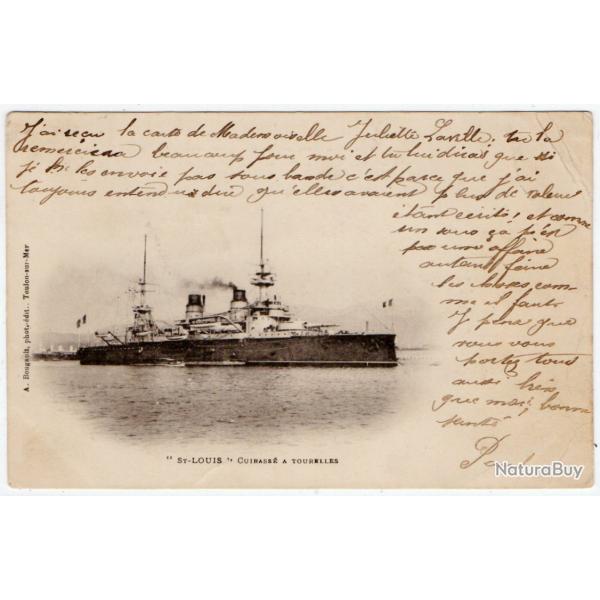 J'ai reçu la carte de Mademoiselle Juliette Laville, tu la
remerciera beaucoup pour moi et tu lui diras que si
je ne les envoie pas sous bande c'est parce que j'ai
toujours entendu dire qu'elles avaient plus de valeur
étant écrite! et comme
un sous ça n'est
pas une affaire
autant faire
les choses com
me il faut
J pense que
vous vous
portez tous
aussi bien
que moi, bonne
santé
A. Bougault, phot.-édit., Toulon-sur-Mer
" St-LOUIS " CUIRASSÉ A TOURELLES
NaturaBuy